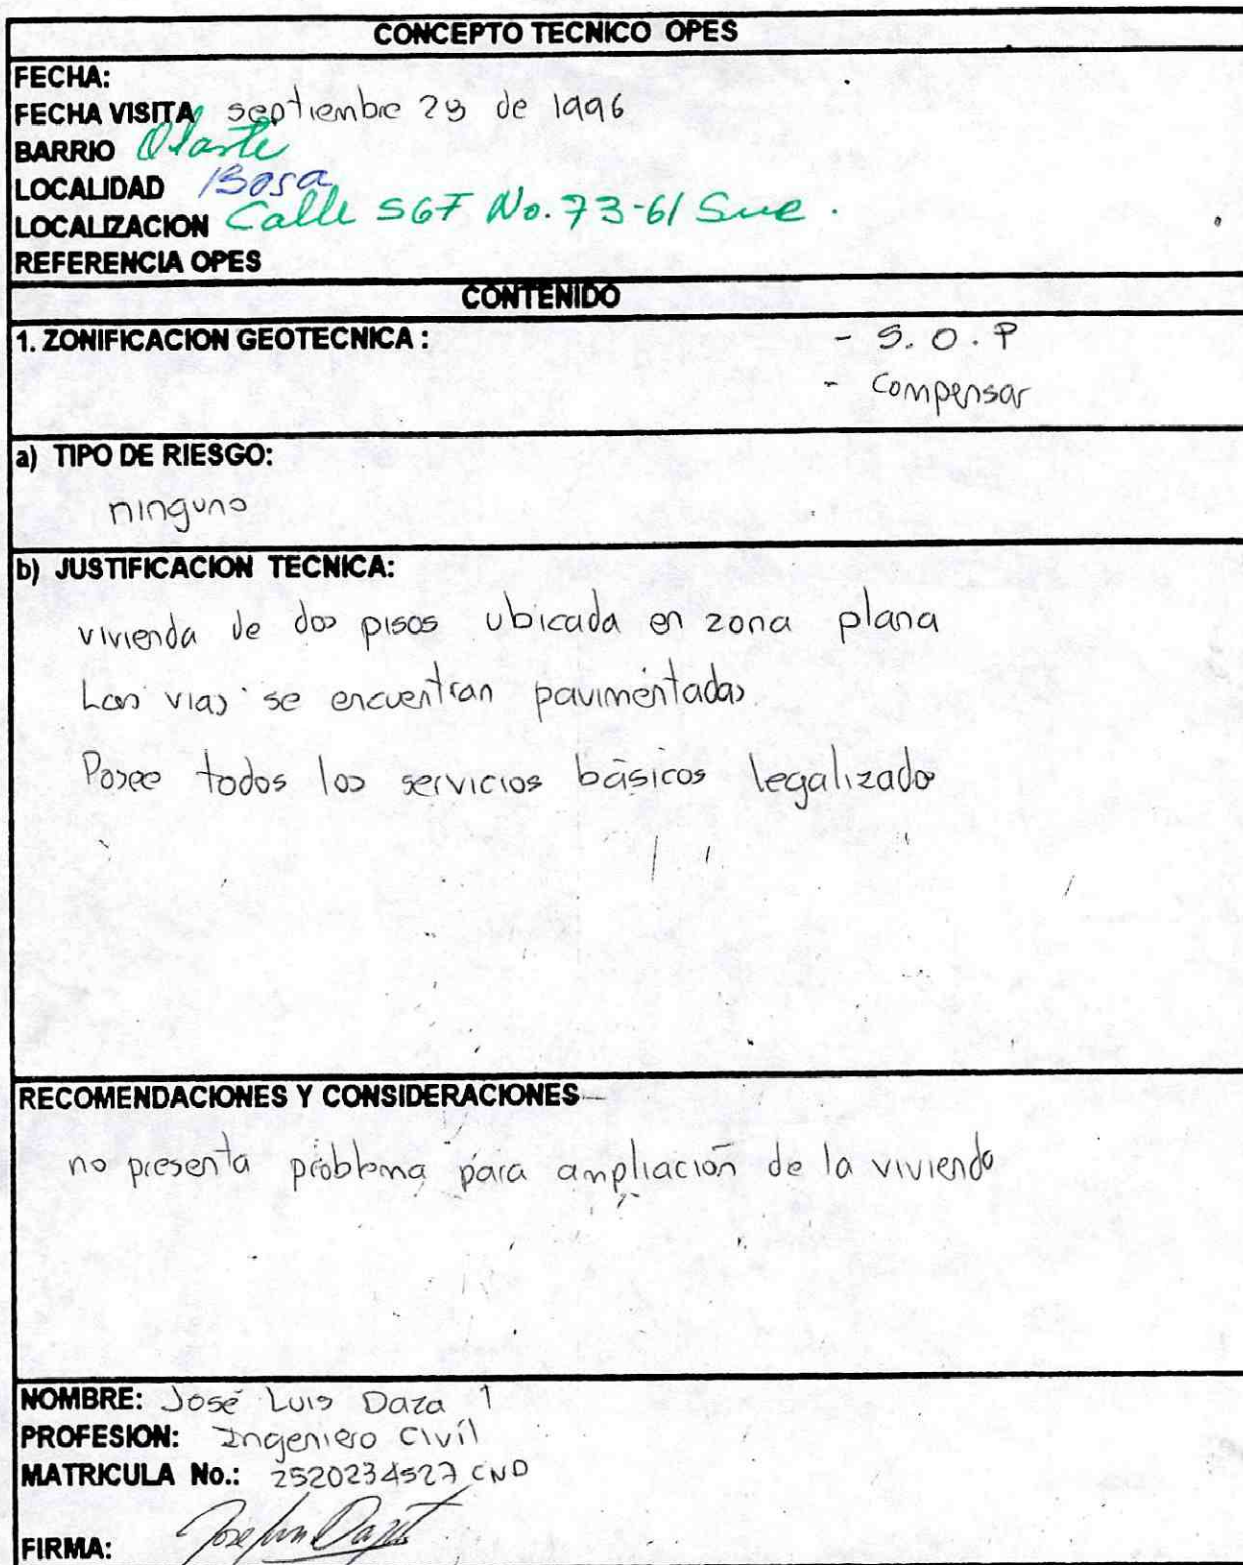 CONCEPTO TECNICO OPES
FECHA:
FECHA VISITA septiembre 23 de 1996
BARRIO Olarte
LOCALIDAD Bosa
LOCALIZACION Calle 56F No. 73-61 Sur.
REFERENCIA OPES
CONTENIDO
1. ZONIFICACION GEOTECNICA : - S.O.P
- Compensar
a) TIPO DE RIESGO:
ninguno
b) JUSTIFICACION TECNICA:
vivienda de dos pisos ubicada en zona plana
Las vias se encuentran pavimentadas
Posee todos los servicios básicos legalizados
RECOMENDACIONES Y CONSIDERACIONES
no presenta problema para ampliación de la vivienda
NOMBRE: José Luis Daza
PROFESION: Ingeniero Civíl
MATRICULA No.: 2520234527 CND
FIRMA: